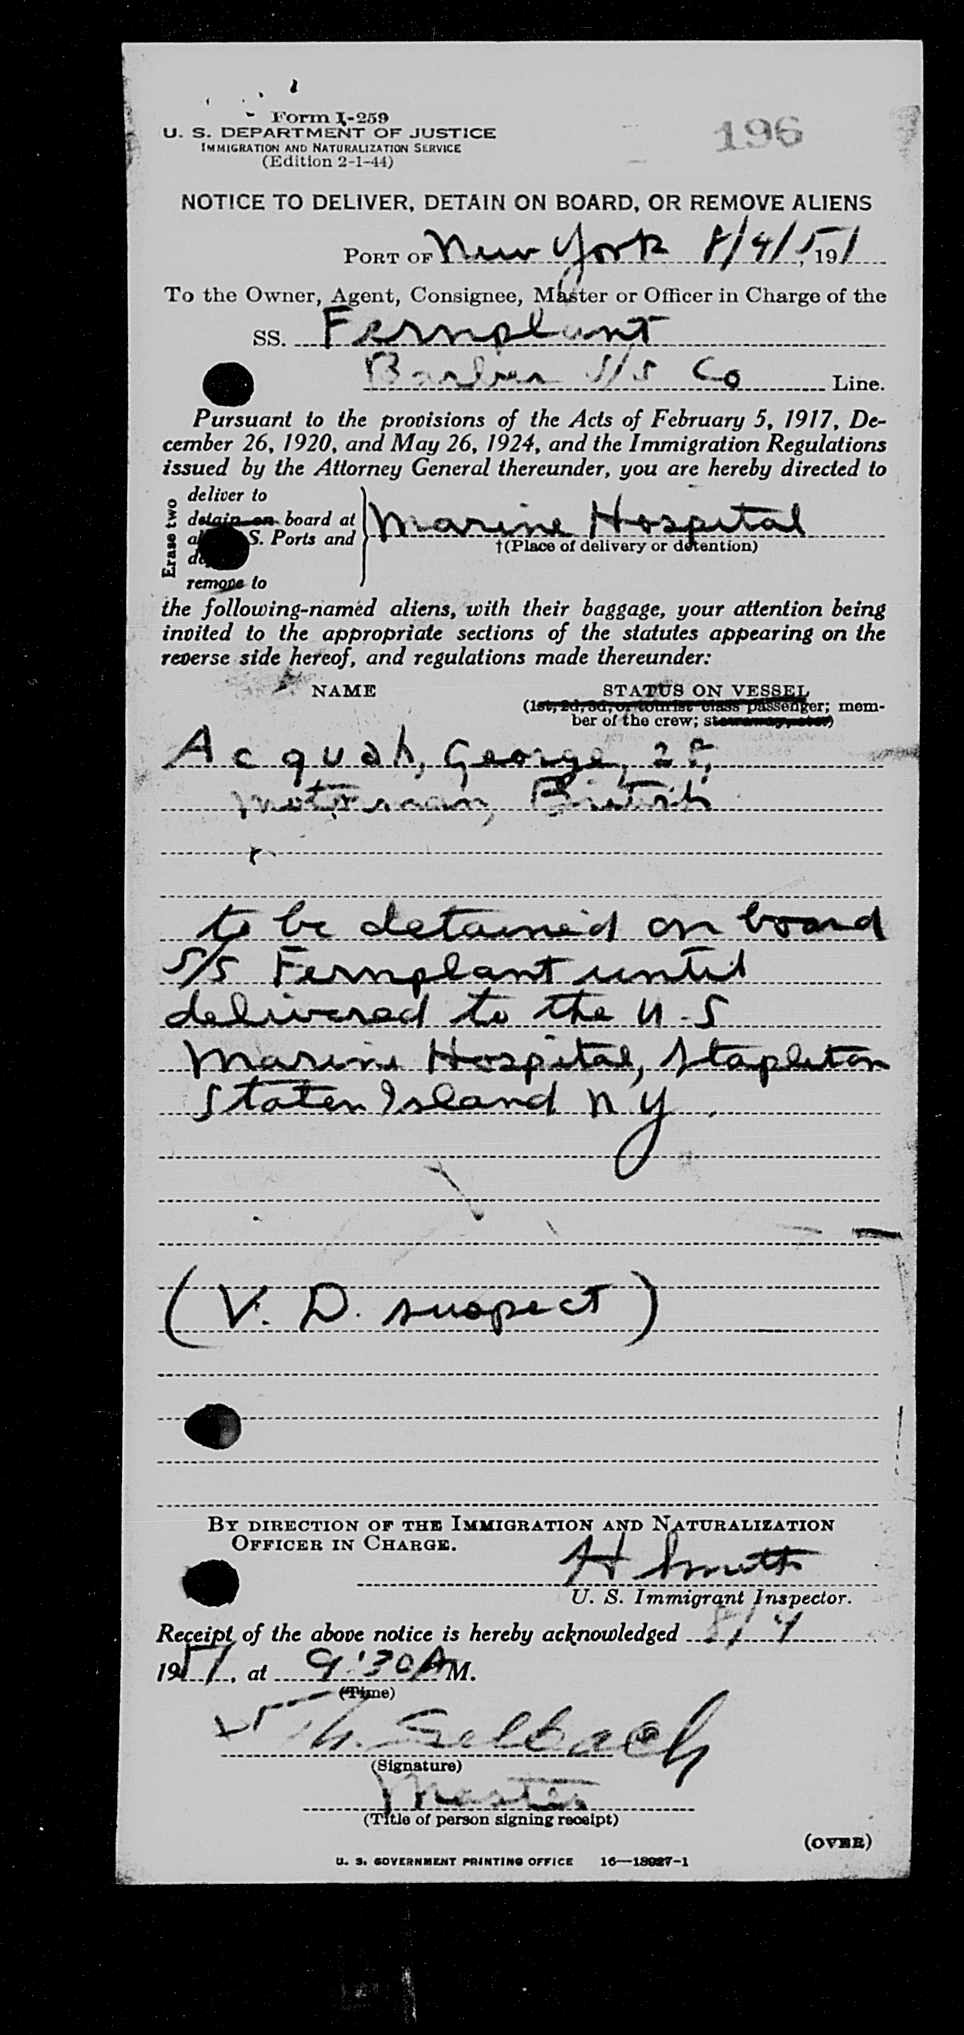 Form I-259
U. S. DEPARTMENT OF JUSTICE
IMMIGRATION AND NATURALIZATION SERVICE
(Edition 2-1-44)
196
NOTICE TO DELIVER, DETAIN ON BOARD, OR REMOVE ALIENS
PORT OF New York 8/4/51, 191
To the Owner, Agent, Consignee, Master or Officer in Charge of the
SS. Fernplant
Barber S/S Co Line.
Pursuant to the provisions of the Acts of February 5, 1917, De-
cember 26, 1920, and May 26, 1924, and the Immigration Regulations
issued by the Attorney General thereunder, you are hereby directed to
Erase two
deliver to
detain on board at
S. Ports and
remove to
Marine Hospital
†(Place of delivery or detention)
the following-named aliens, with their baggage, your attention being
invited to the appropriate sections of the statutes appearing on the
reverse side hereof, and regulations made thereunder:
NAME STATUS ON VESSEL
(1st, 2d, 3d, or tourist class passenger; mem-
ber of the crew; stowaway, etc.)
Acquah, George,
Motorman, British
to be detained on board
S/S Fernplant until
delivered to the U.S
Marine Hospital, Stapleton
Staten Island N Y.
(V. D. suspect)
BY DIRECTION OF THE IMMIGRATION AND NATURALIZATION
OFFICER IN CHARGE.
H Smith
U. S. Immigrant Inspector.
Receipt of the above notice is hereby acknowledged 8/4
1951, at 9:30 AM.
(Time)
Selbach
(Signature)
Master
(Title of person signing receipt)
(OVER)
U. S. GOVERNMENT PRINTING OFFICE 16—18927-1